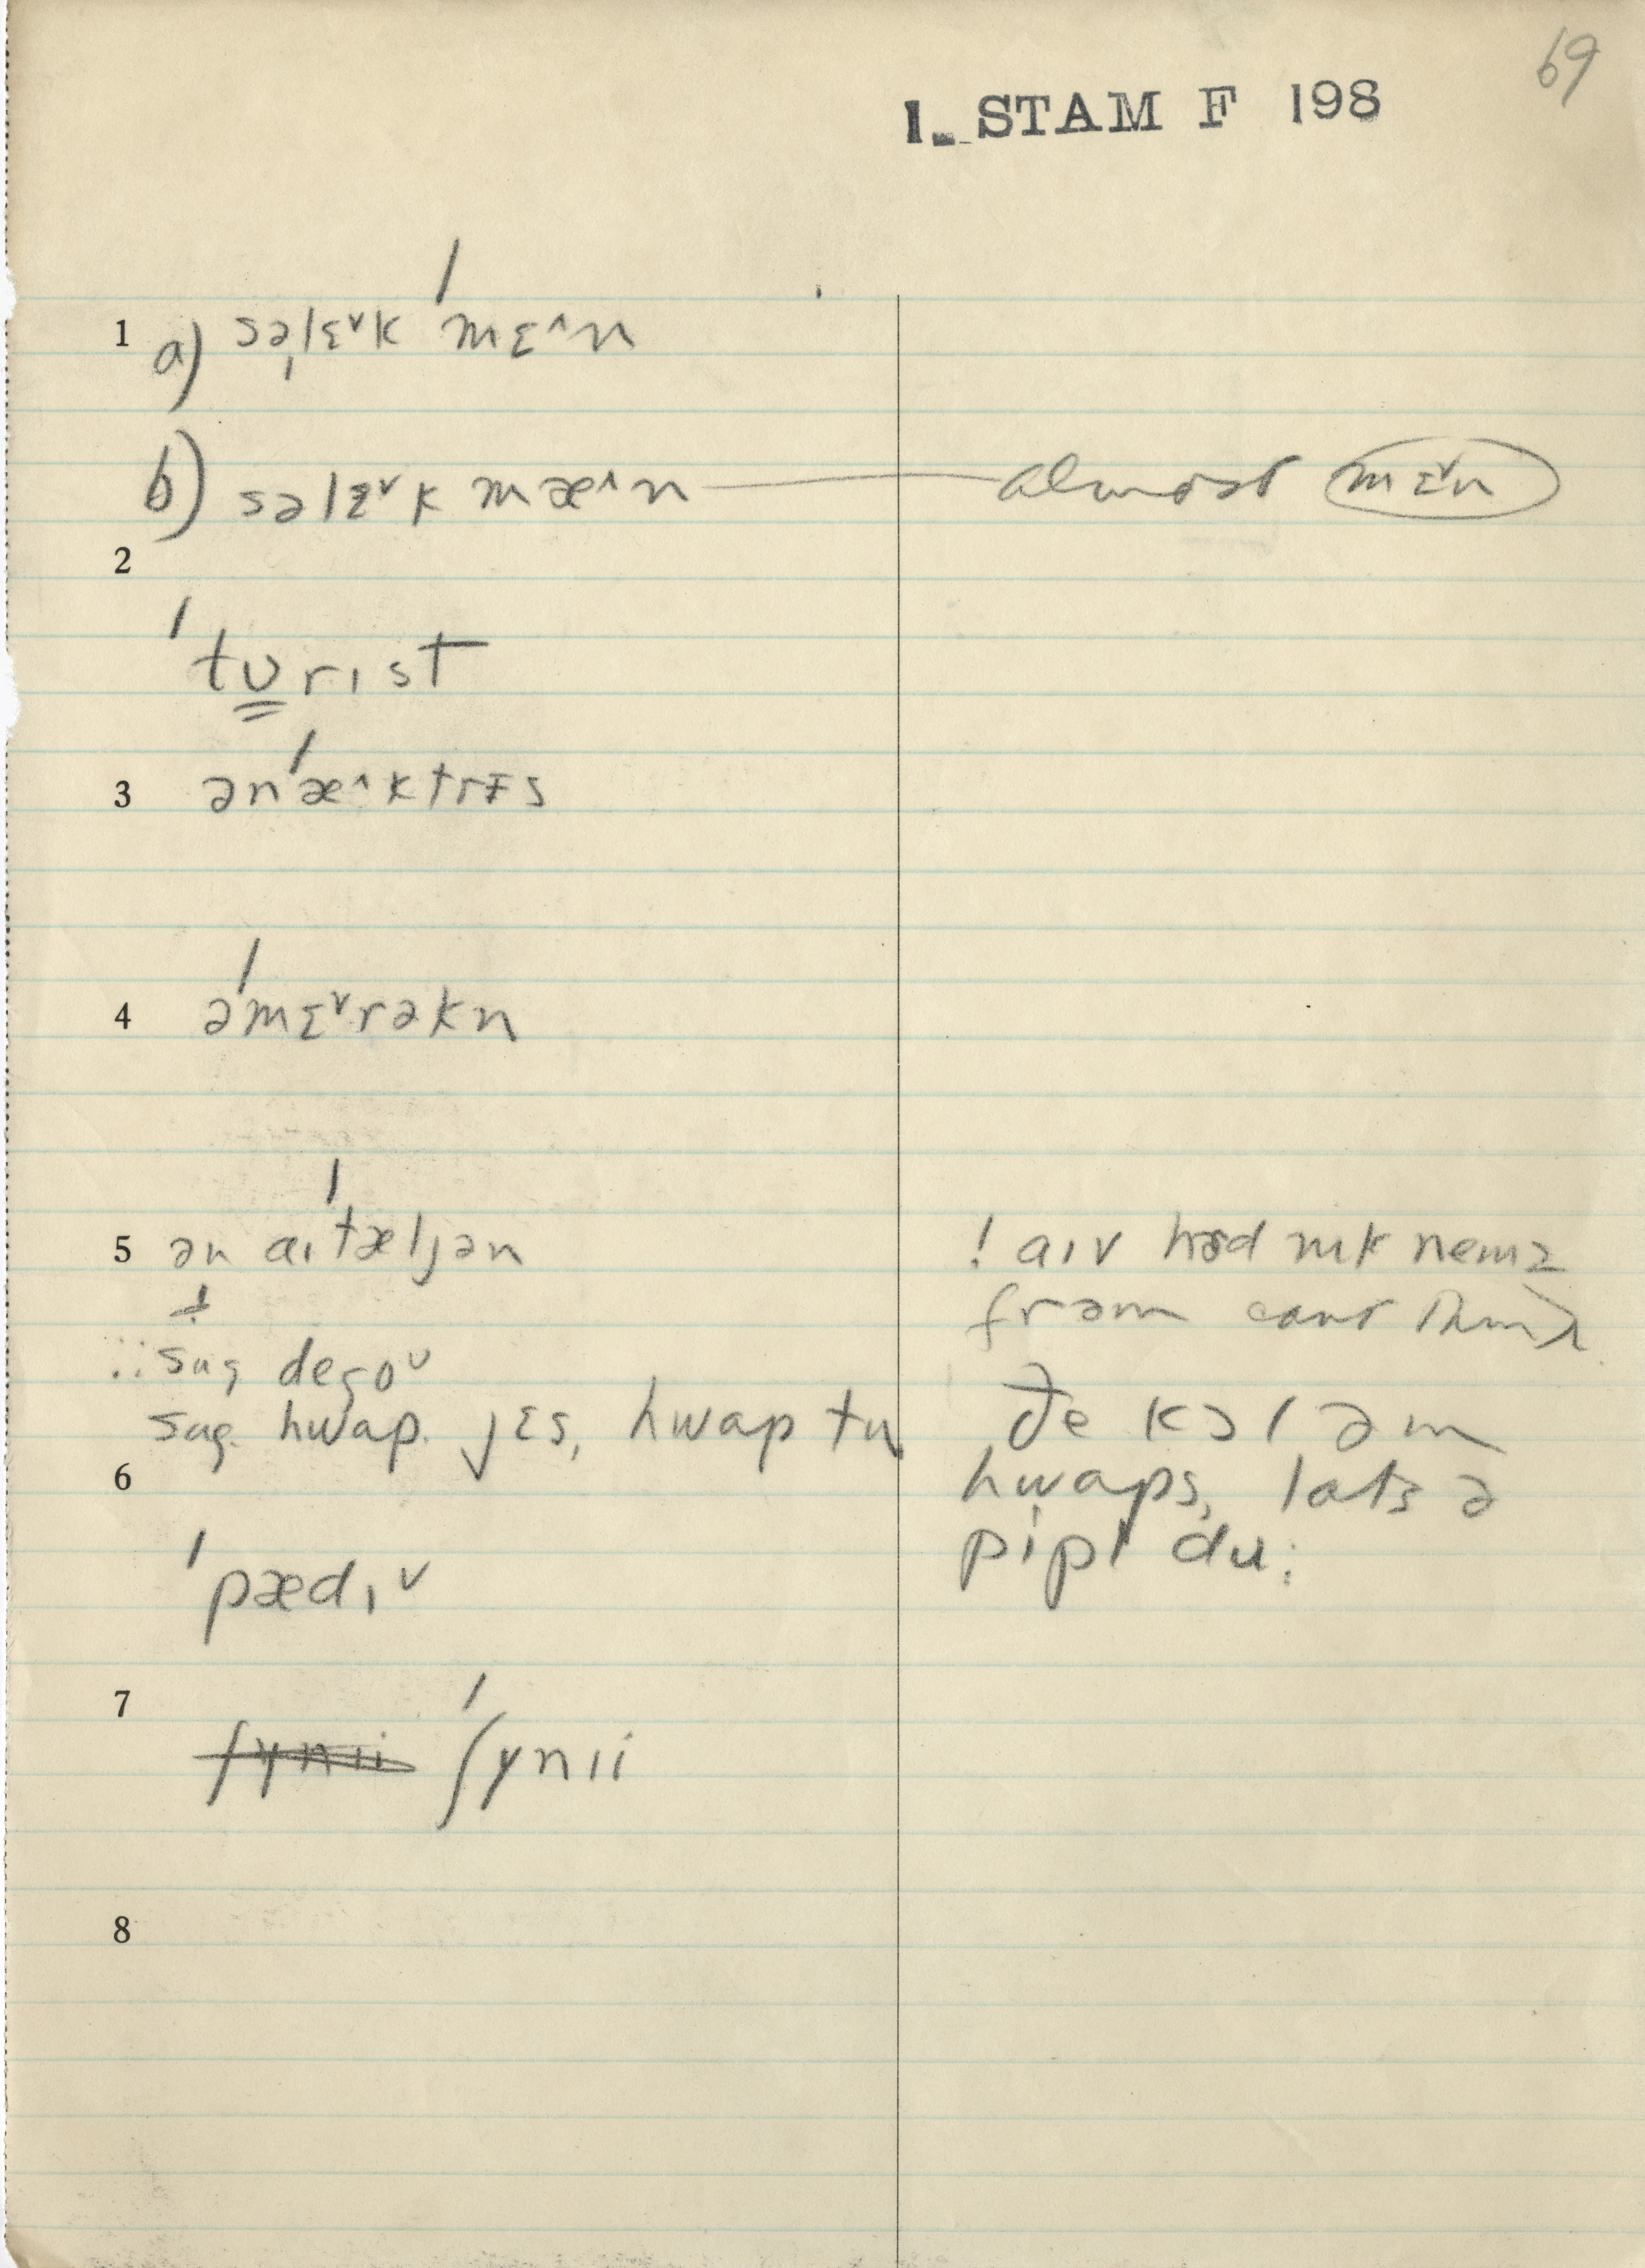 69
1. STAM F 198
1 a) səˌlɛ˅k ˈmɛ˄n
b) səlɛ˅k mæ˄n — almost mɛ˅n
2
ˈtʊrɪst
3 ənˈæ˄ktrɪs
4 əˈmɛ˅rəkn
5 ən aɪˈtæljən
! aɪv həd nɪk nemz
frəm
∴ sug degoᴜ
sug. hwap. jɛs, hwap tu
ðe kɔl əm
6
hwaps, lɑts ə
pipl du:
ˈpædɪ˅
7
ʃynii ˈʃynii
8